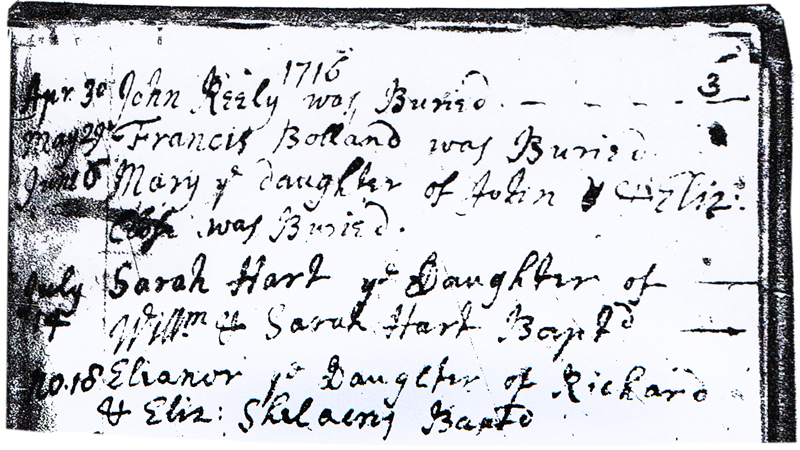 1716
Apr. 30 John Keely was Buried. - - - - 3
May 29 Francis Bolland was Buried
June 6 Mary ye daughter of John & Eliz:
was Buried.
July Sarah Hart ye Daughter of —
14 Willm & Sarah Hart Baptd —
no. 18 Elianor ye Daughter of Richard
& Eliz: Baptd